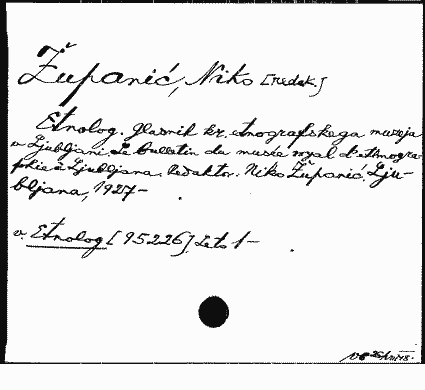 Županić, Niko [redak.]
Etnolog. Glasnik kr. etnografskega muzeja
v Ljubljani. Le bulletin du musée royal d'etnogra-
phie à Ljubljana. Redaktor. Niko Županić. Lju-
bljana, 1927-
v. Etnolog [95226] Leto 1-